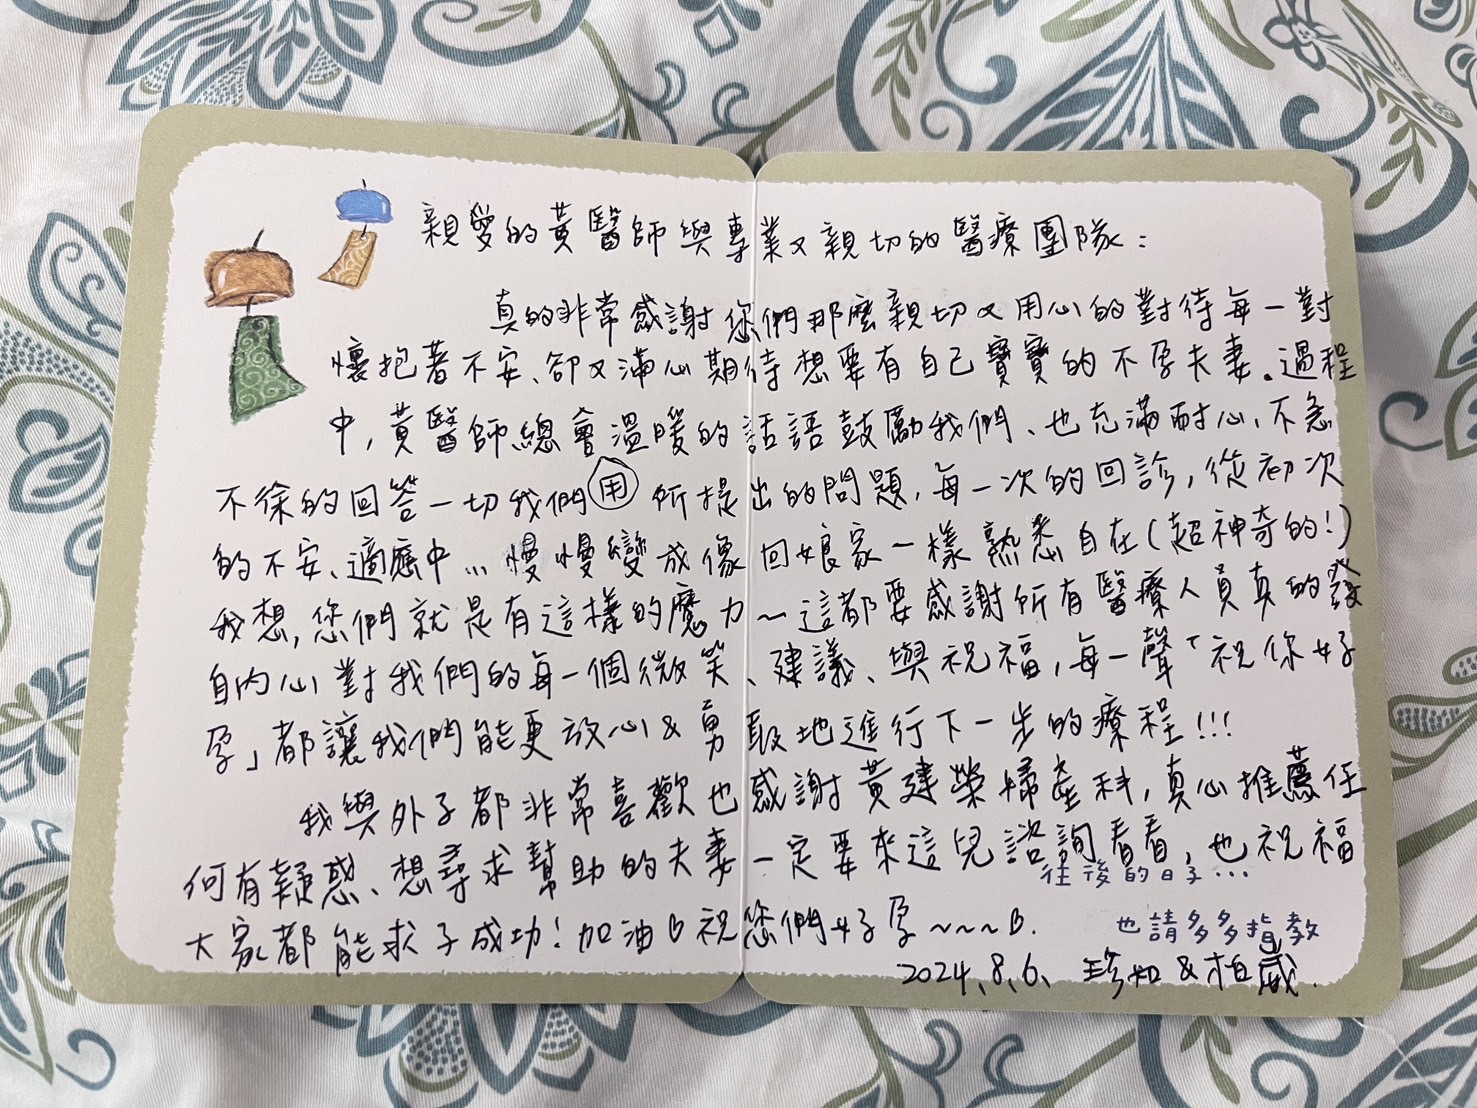 親愛的黃醫師與專業又親切的醫療團隊：
真的非常感謝您們那麼親切又用心的對待每一對
懷抱著不安、卻又滿心期待想要有自己寶寶的不孕夫妻。過程
中，黃醫師總會溫暖的話語鼓勵我們、也充滿耐心、不急
不徐的回答一切我們用所提出的問題，每一次的回診，從初次
的不安、適應中... 慢慢變成像回娘家一樣熟悉自在(超神奇的!)
我想，您們就是有這樣的魔力~這都要感謝所有醫療人員真的發
自內心對我們的每一個微笑、建議、與祝福，每一聲「祝你好
孕」都讓我們能更放心&勇敢地進行下一步的療程!!!
我與外子都非常喜歡也感謝黃建榮婦產科，真心推薦任
何有疑惑、想尋求幫助的夫妻一定要來這兒諮詢看看，也祝福
往後的日子...
大家都能求子成功！加油 祝您們好孕~~~
也請多多指教
2024、8、6、 珍如&柏威.